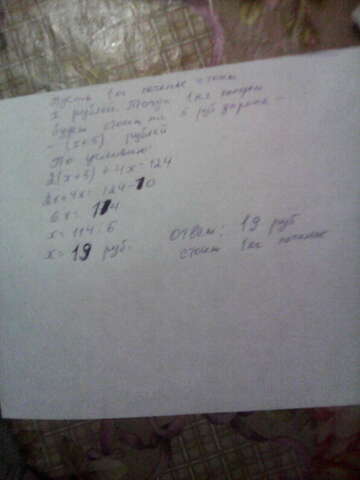 Пусть 1 кг печенье стоит
x рублей. Тогда 1 кг конфет
будет стоить на 5 руб дороже -
- (x+5) рублей
По условию:
2(x+5)+4x=124
2x+4x=124-10
6x=114
x=114:6
x=19 руб.
ответ: 19 руб
стоит 1кг печенье